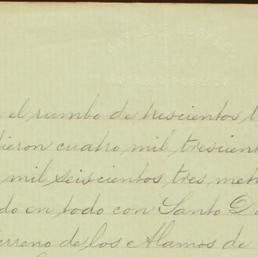 el rumbo de trescientos
cuatro mil trescien
mil seiscientos tres me
do en todo con Santo Do
terreno de los Alamos de